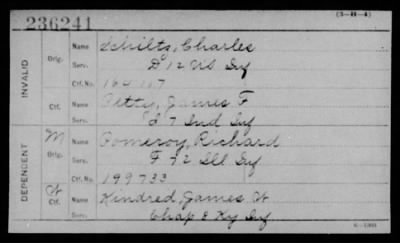 236241
(3-H-4)
INVALID
Orig. Name Schiltz, Charles
Serv. D 12 US Inf
Ctf. No.
Ctf. Name Petty, James F
Serv. 7 Ind Inf
DEPENDENT
M Orig. Name Pomeroy, Richard
Serv. F 72 Ill Inf
Ctf. No. 199733
Ctf. Name Kindred, James W
Serv. Chap 8 Ky Inf